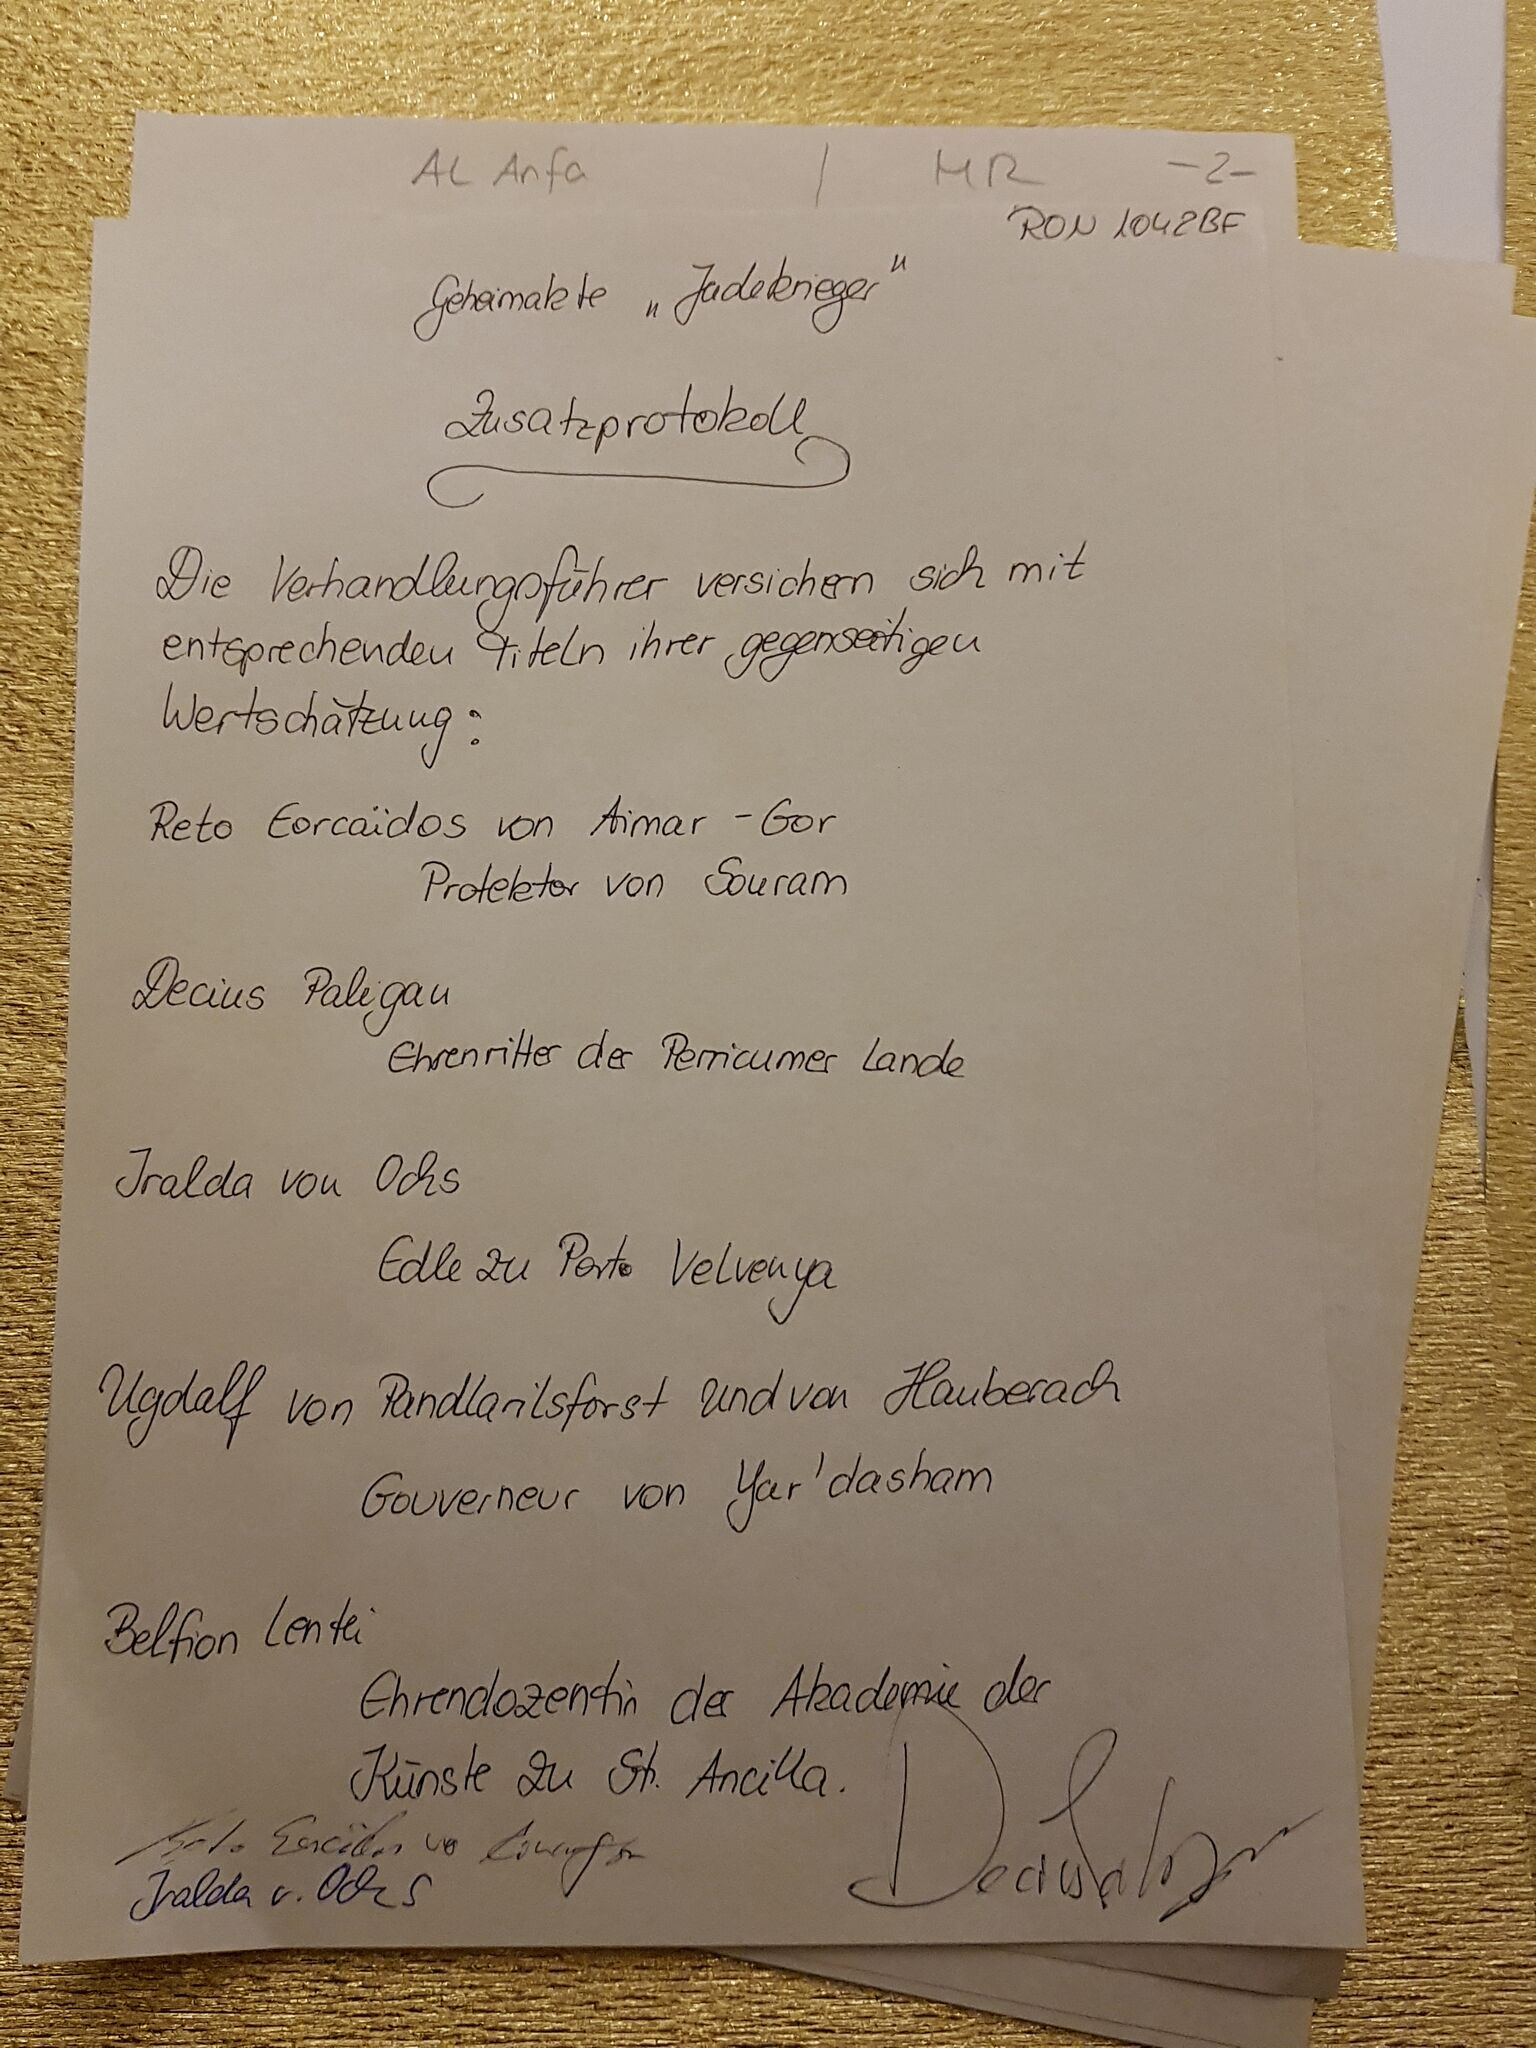 AL Anfa / MR -2-
RON 1042BF
Geheimakte „Jadekrieger"
Zusatzprotokoll
Die Verhandlungsführer versichern sich mit
entsprechenden Titeln ihrer gegenseitigen
Wertschätzung:
Reto Eorcaïdos von Aimar-Gor
Protektor von Souram
Decius Paligan
Ehrenritter der Perricumer Lande
Iralda von Ochs
Edle zu Porto Velvenya
Ugdalf von Pandlarilsforst und von Hauberach
Gouverneur von Yar'dasham
Belfion Lentei
Ehrendozentin der Akademie der
Künste zu St. Ancilla.
Reto Eorcaïdos
Iralda v. Ochs
Decius Paligan